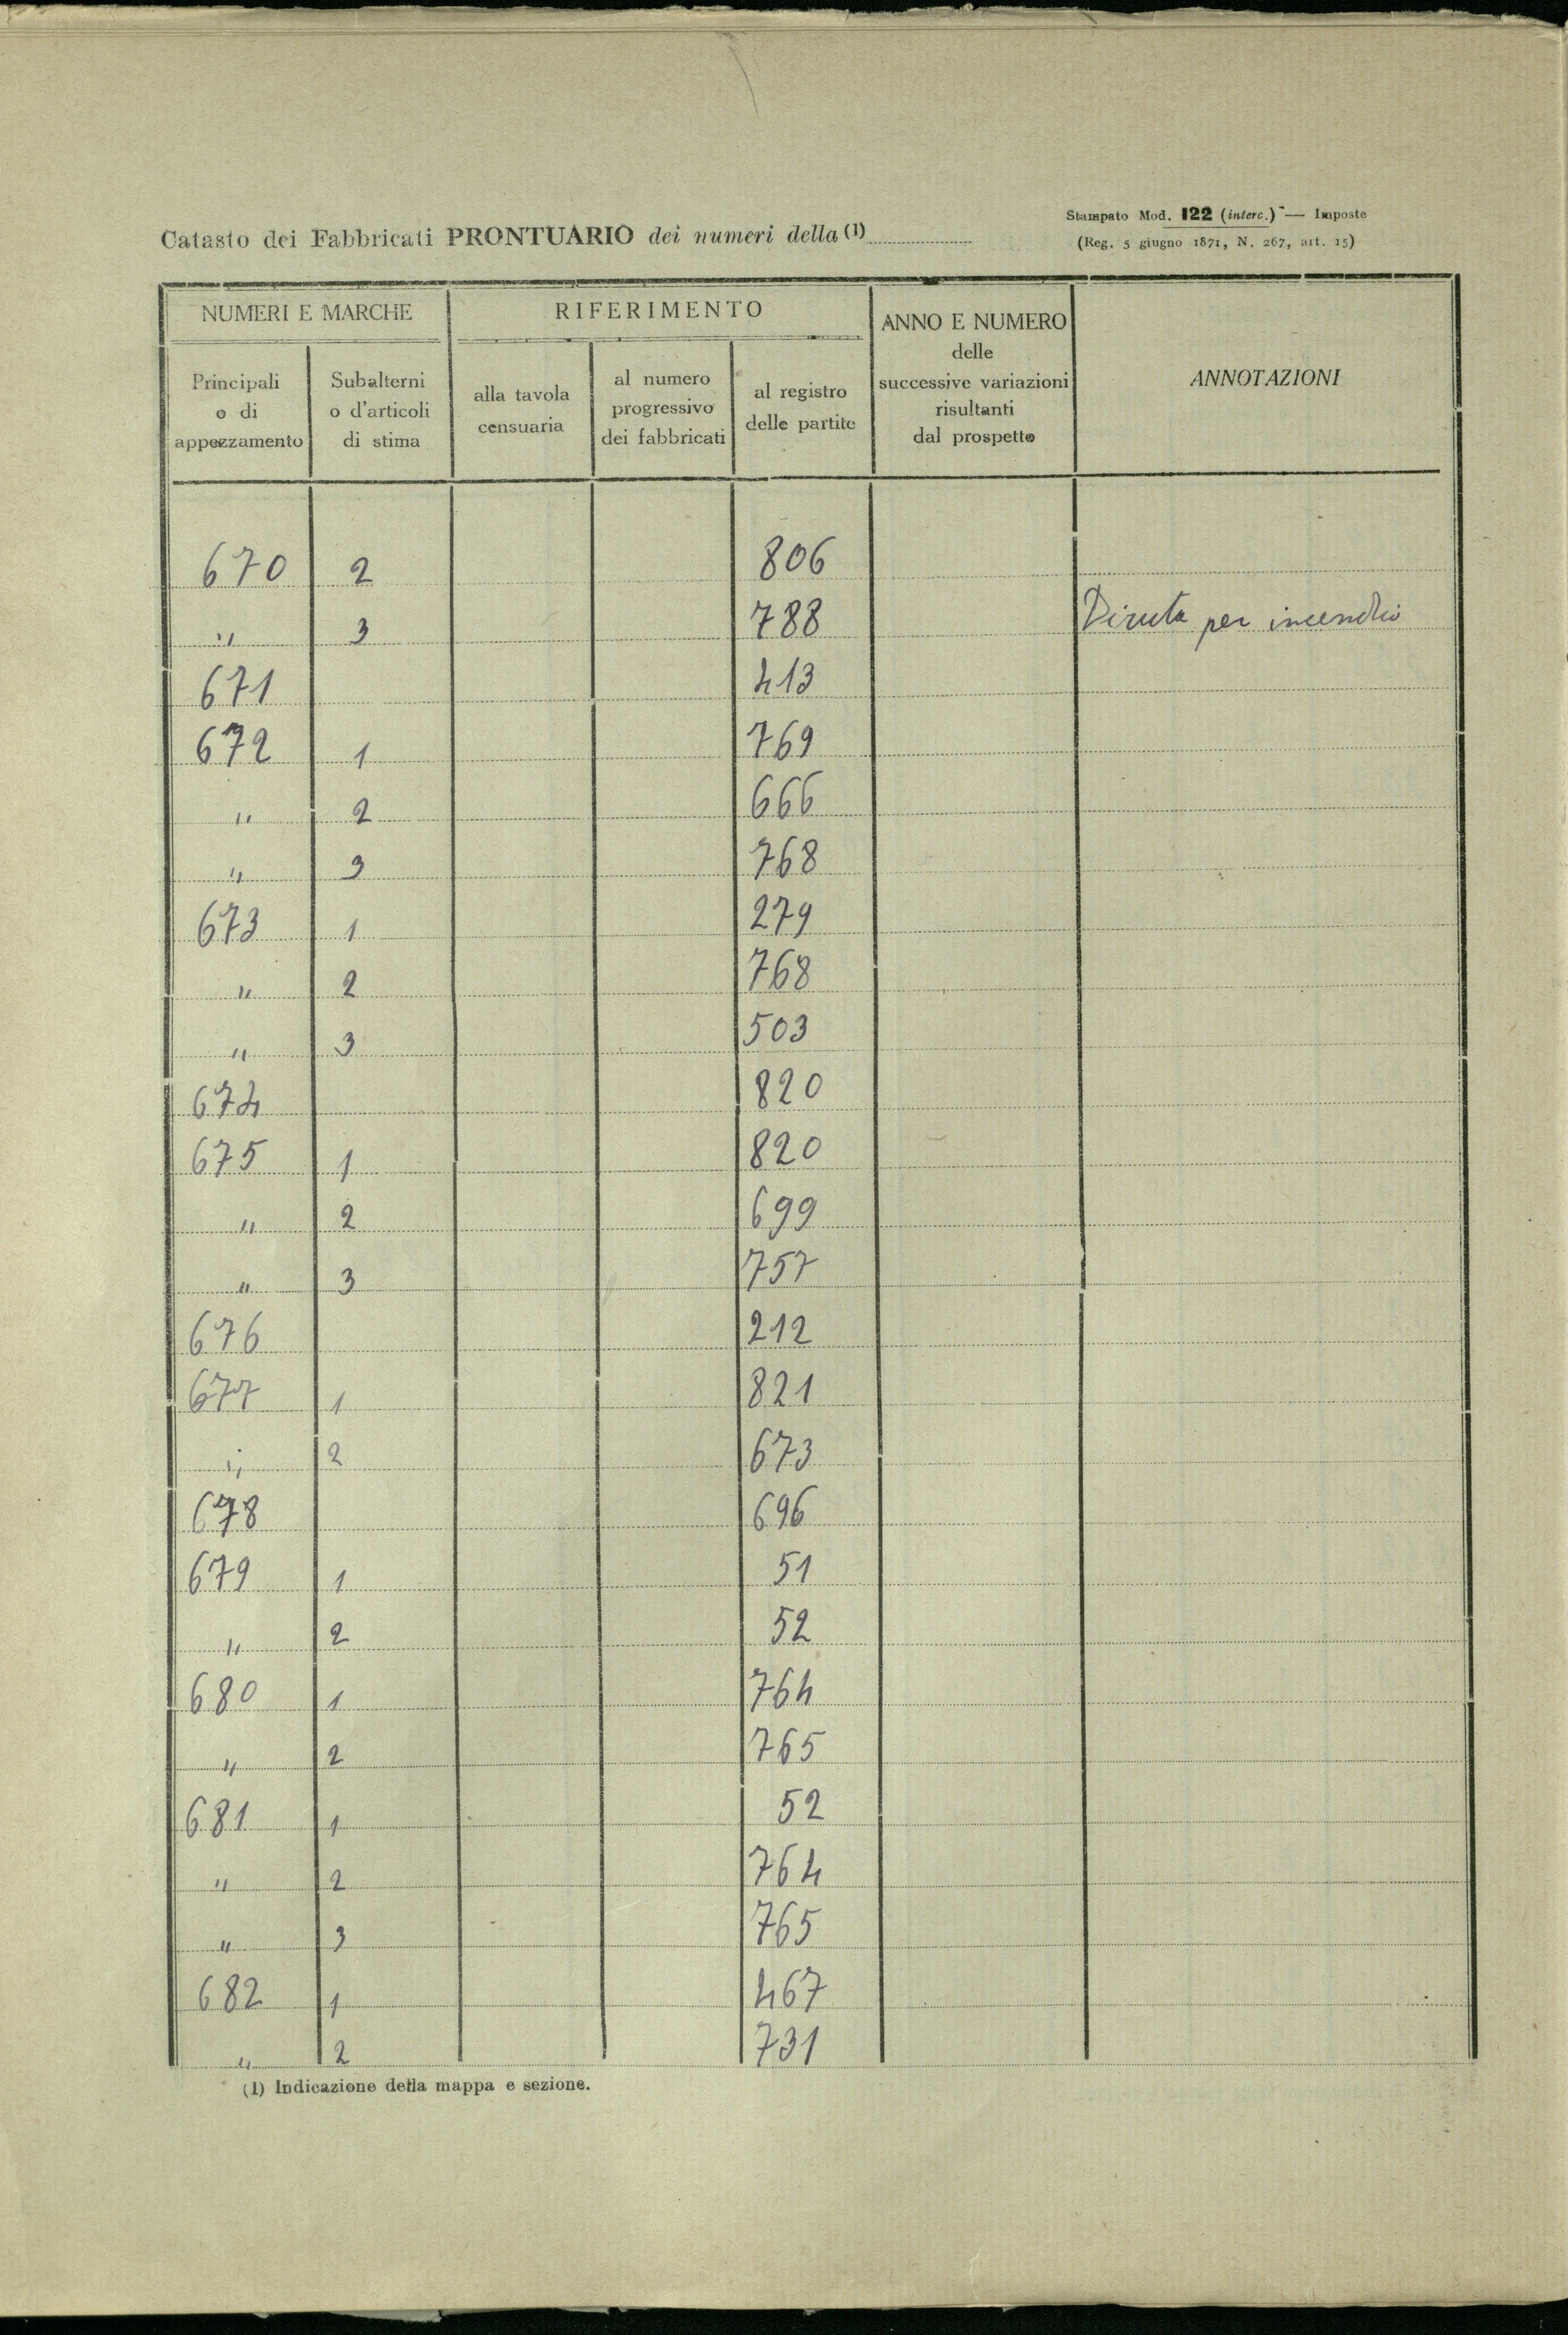 Stampato Mod. 122 (interc.) — Imposte
Catasto dei Fabbricati PRONTUARIO dei numeri della (1)
(Reg. 5 giugno 1871, N. 267, art. 15)
NUMERI E MARCHE
RIFERIMENTO
ANNO E NUMERO
delle
successive variazioni
risultanti
dal prospetto
ANNOTAZIONI
Principali
o di
appezzamento
Subalterni
o d'articoli
di stima
alla tavola
censuaria
al numero
progressivo
dei fabbricati
al registro
delle partite
670 2 806
" 3 788 Diruta per incendio
671 413
672 1 769
" 2 666
" 3 768
673 1 279
" 2 768
" 3 503
674 820
675 1 820
" 2 699
" 3 757
676 212
677 1 821
" 2 673
678 696
679 1 51
" 2 52
680 1 764
" 2 765
681 1 52
" 2 764
" 3 765
682 1 467
" 2 731
(1) Indicazione della mappa e sezione.